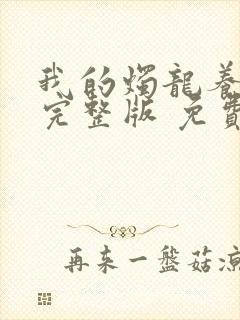 我的燭龍養
完整版 免費
再来一盤菇凉